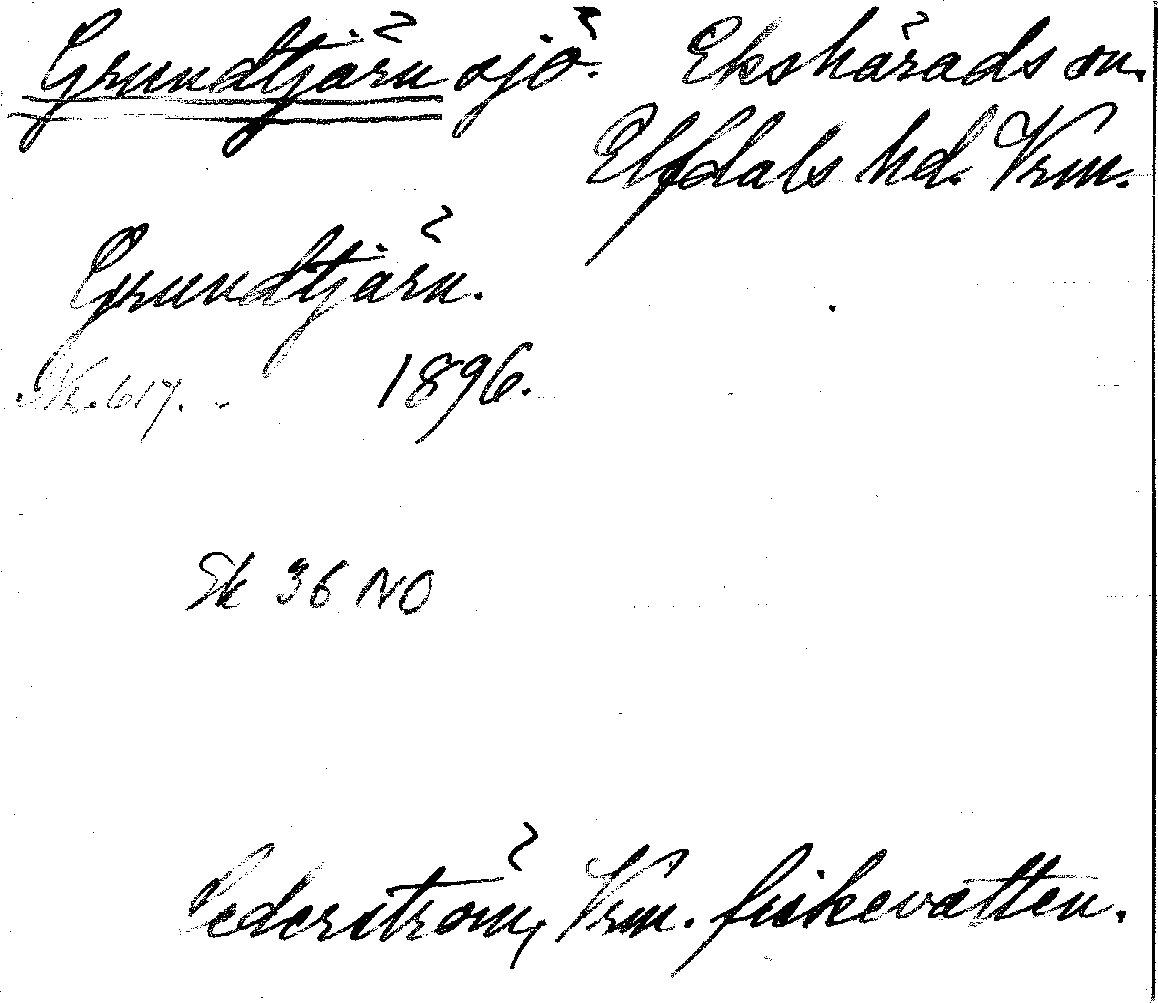 Grundtjärn sjö. Ekshärads sn.
Elfdals hd. Vrm.
Grundtjärn.
617. 1896.
Ek 36 NO
Cederström, Vrm. fiskevatten.